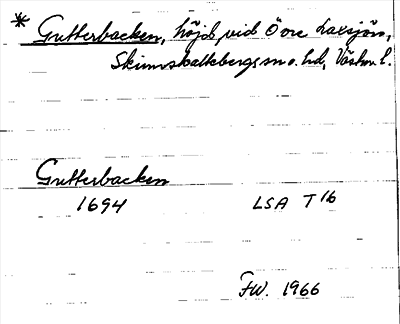 * Gutterbacken, höjd vid Övre Laxsjön,
Skinnskattebergs sn o. hd, Västm. l.
Gutterbacken
1694 LSA T 16
FW. 1966